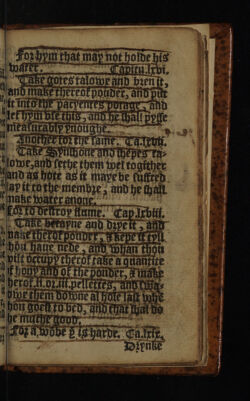 For hym that may not holde his
water. Capitu.lxvi.
Take gotes talowe and bren it,
and make therof pouder, and put
it into the pacyentes potage, and
let hym vse this, and he shall pysse
measurably ynoughe.
Another for the same. Ca.lxvii.
Take Synthone and shepes ta-
lowe, and sethe them wel togither
and as hote as it maye be suffred
ay it to the membre, and he shall
make water anone.
for to destroy flume. Cap.lxviii.
Take and drye it, and
make therof pouder, & kepe it tyll
thou haue nede, and whan thou
wilt occupy therof take a quantite
f hony and of the pouder, & make
therof .ii.or.iii.pellettes, and swa-
owe them downe al hole last whē
hou goest to bed, and that shal do
he muche good.
For a wōbe y is harde. Ca.lxix.
Drynke